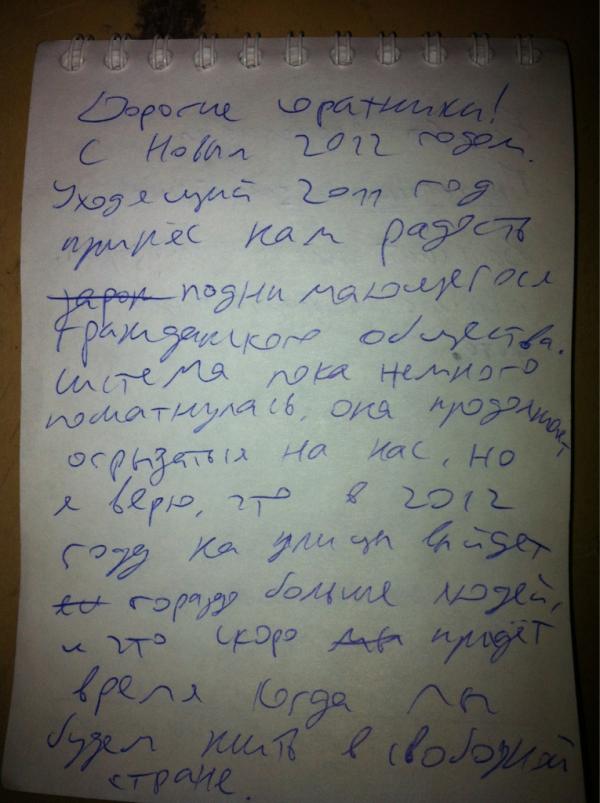 Дорогие соратники!
С Новым 2012 годом.
Уходящий 2011 год
принёс нам радость
поднимающегося
гражданского общества.
Система пока немного
пошатнулась, она продолжает
огрызаться на нас, но
я верю, что в 2012
году на улицы выйдет
гораздо больше людей,
и что скоро придёт
время когда мы
будем жить в свободной
стране.